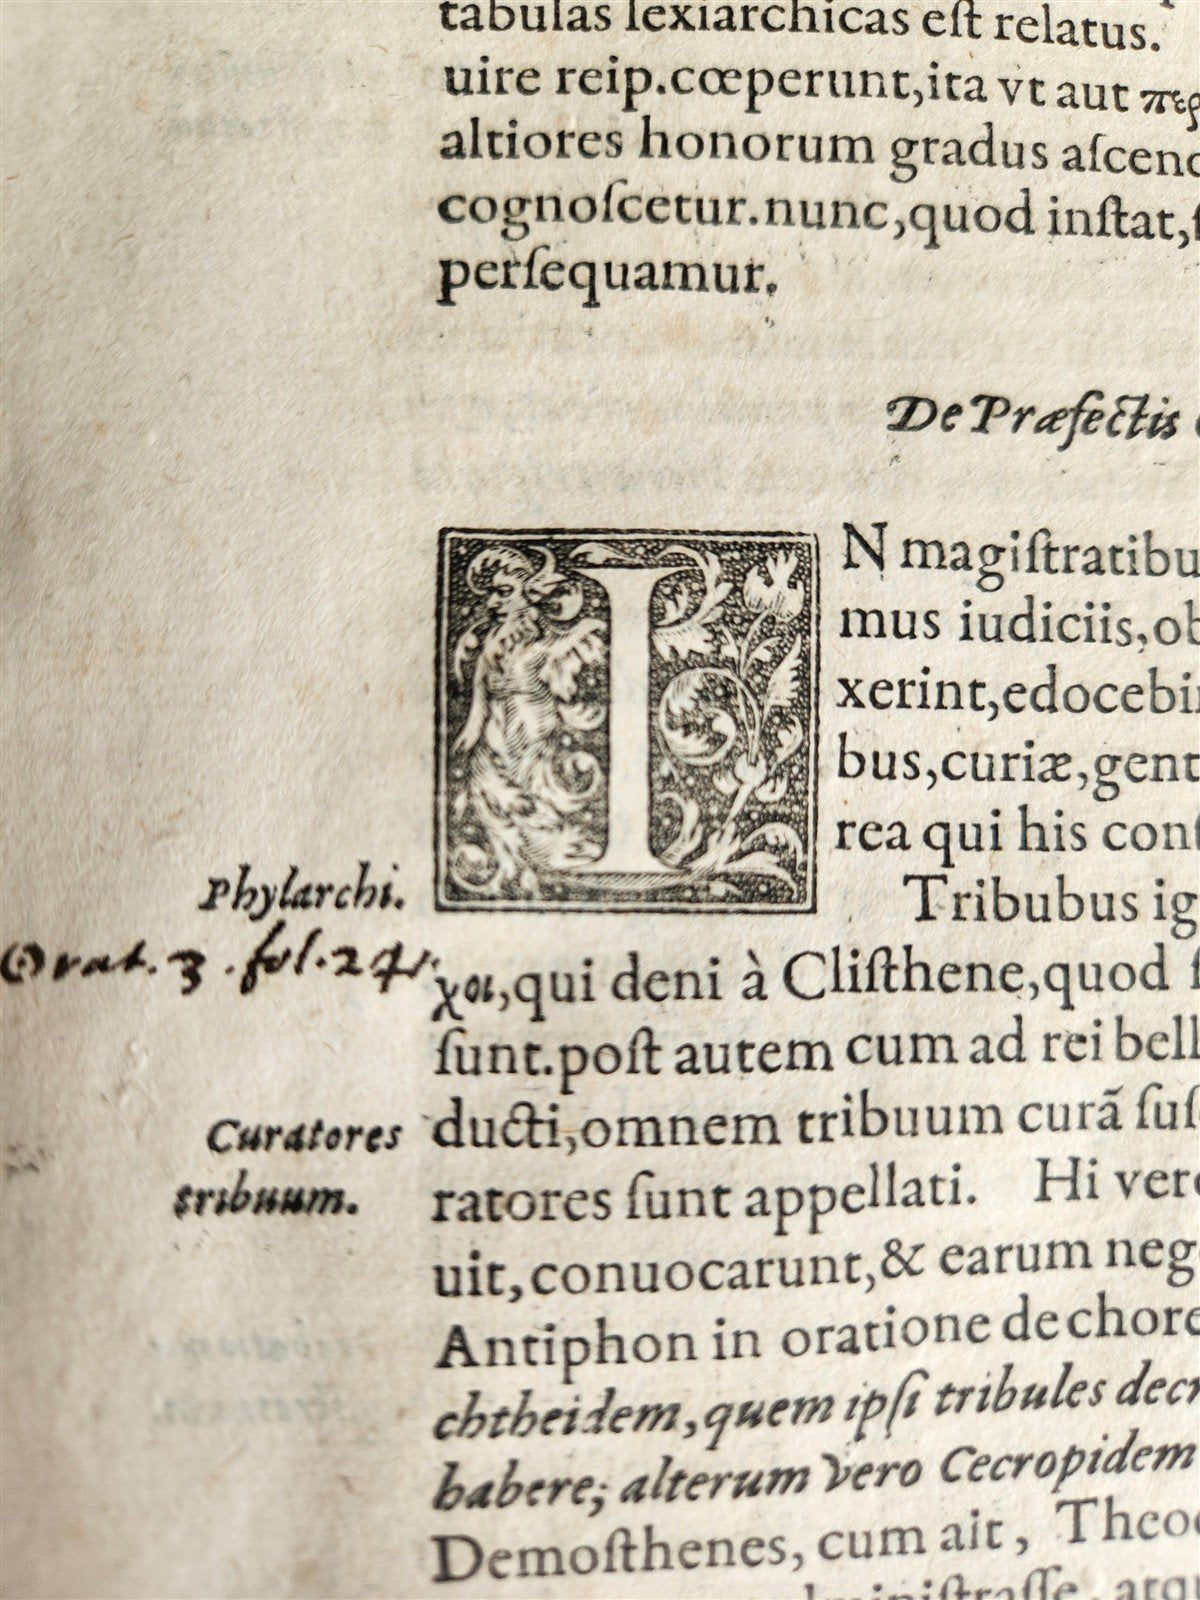 tabulas lexiarchicas eſt relatus.
uire reip.cœperunt,ita vt aut περ
altiores honorum gradus aſcend
cognoſcetur.nunc,quod inſtat,ſ
perſequamur.
De Præfectis
IN magiſtratibu
mus iudiciis,ob
xerint,edocebi
bus,curiæ,gent
rea qui his conſ
Phylarchi.
Tribubus ig
Orat. 3. fol. 24.
χοι,qui deni à Cliſthene,quod ſ
ſunt.poſt autem cum ad rei bell
Curatores
ducti,omnem tribuum curã ſuſ
tribuum.
ratores ſunt appellati. Hi vero
uit,conuocarunt,& earum nego
Antiphon in oratione de chore
chtheidem,quem ipſi tribules decr
habere; alterum vero Cecropidem
Demoſthenes, cum ait, Theoc
miniſtraſſe, atqu